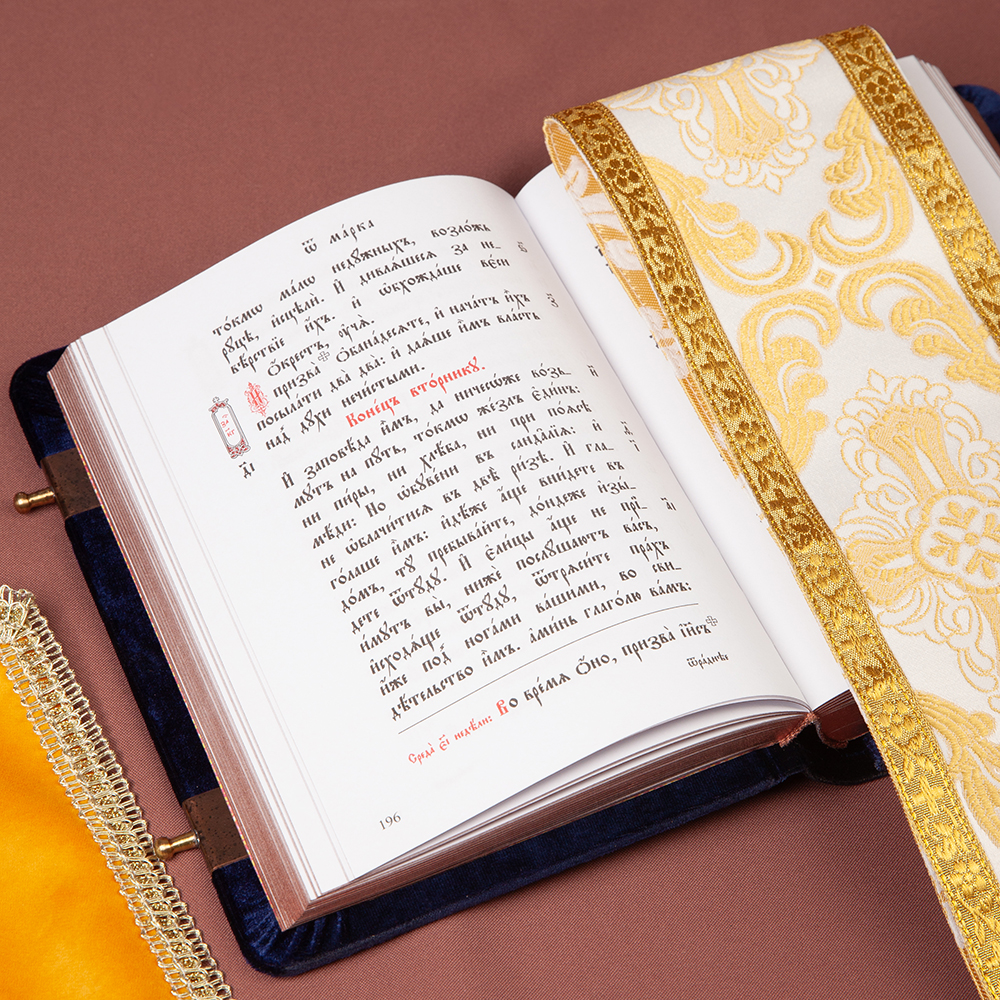 Ѿ ма́рка
то́кмѡ ма́лѡ недꙋ́жныхъ, возло́жь
рꙋ́цѣ, и҆сцѣлѝ. И҆ дивлѧ́шесѧ за не-
вѣ́рствїе и҆́хъ. и҆ ѡ҆бхожда́ше вє́си
ѡ҆́крестъ, ᲂу҆чѧ̀
И҆ призва̀ ѻ҆бана́десѧте, и҆ нача́тъ и҆̀хъ
посыла́ти два̀ два̀: и҆ даѧ́ше и҆̀мъ вла́сть
над̾ дꙋ̑хи нечи́стыми.
Коне́цъ вто́рникꙋ.
И҆ заповѣ́да и҆̀мъ, да ничесѡ́же во́з-
мꙋтъ на пꙋ́ть, то́кмѡ же́злъ є҆ди́нъ:
ни пи́ры, ни хлѣ́ба, ни при по́ѧсѣ
мѣ́ди: Но ѡ҆бꙋве́ни въ санда̑лїѧ: и҆
не ѡ҆блачи́тисѧ въ двѣ̀ ри̑зѣ. И҆ гла-
го́лаше и҆̀мъ: и҆дѣ́же а҆́ще вни́дете въ
до́мъ, тꙋ̀ пребыва́йте, до́ндеже и҆зы́-
дете ѿтꙋ́дꙋ. И҆ є҆ли́цы а҆́ще не прїи́-
мꙋтъ вы̀, нижѐ послꙋ́шаютъ ва́съ,
и҆сходѧ́ще ѿтꙋ́дꙋ, ѿтрѧси́те пра́хъ
и҆́же под̾ нога́ми ва́шими, во сви-
дѣ́тельство и҆̀мъ. а҆ми́нь глаго́лю ва́мъ:
Среда̀ є҃і недѣ́ли: Во вре́мѧ ѻ҆́но, призва̀ і҆и҃съ
ѿра́днѣе
196